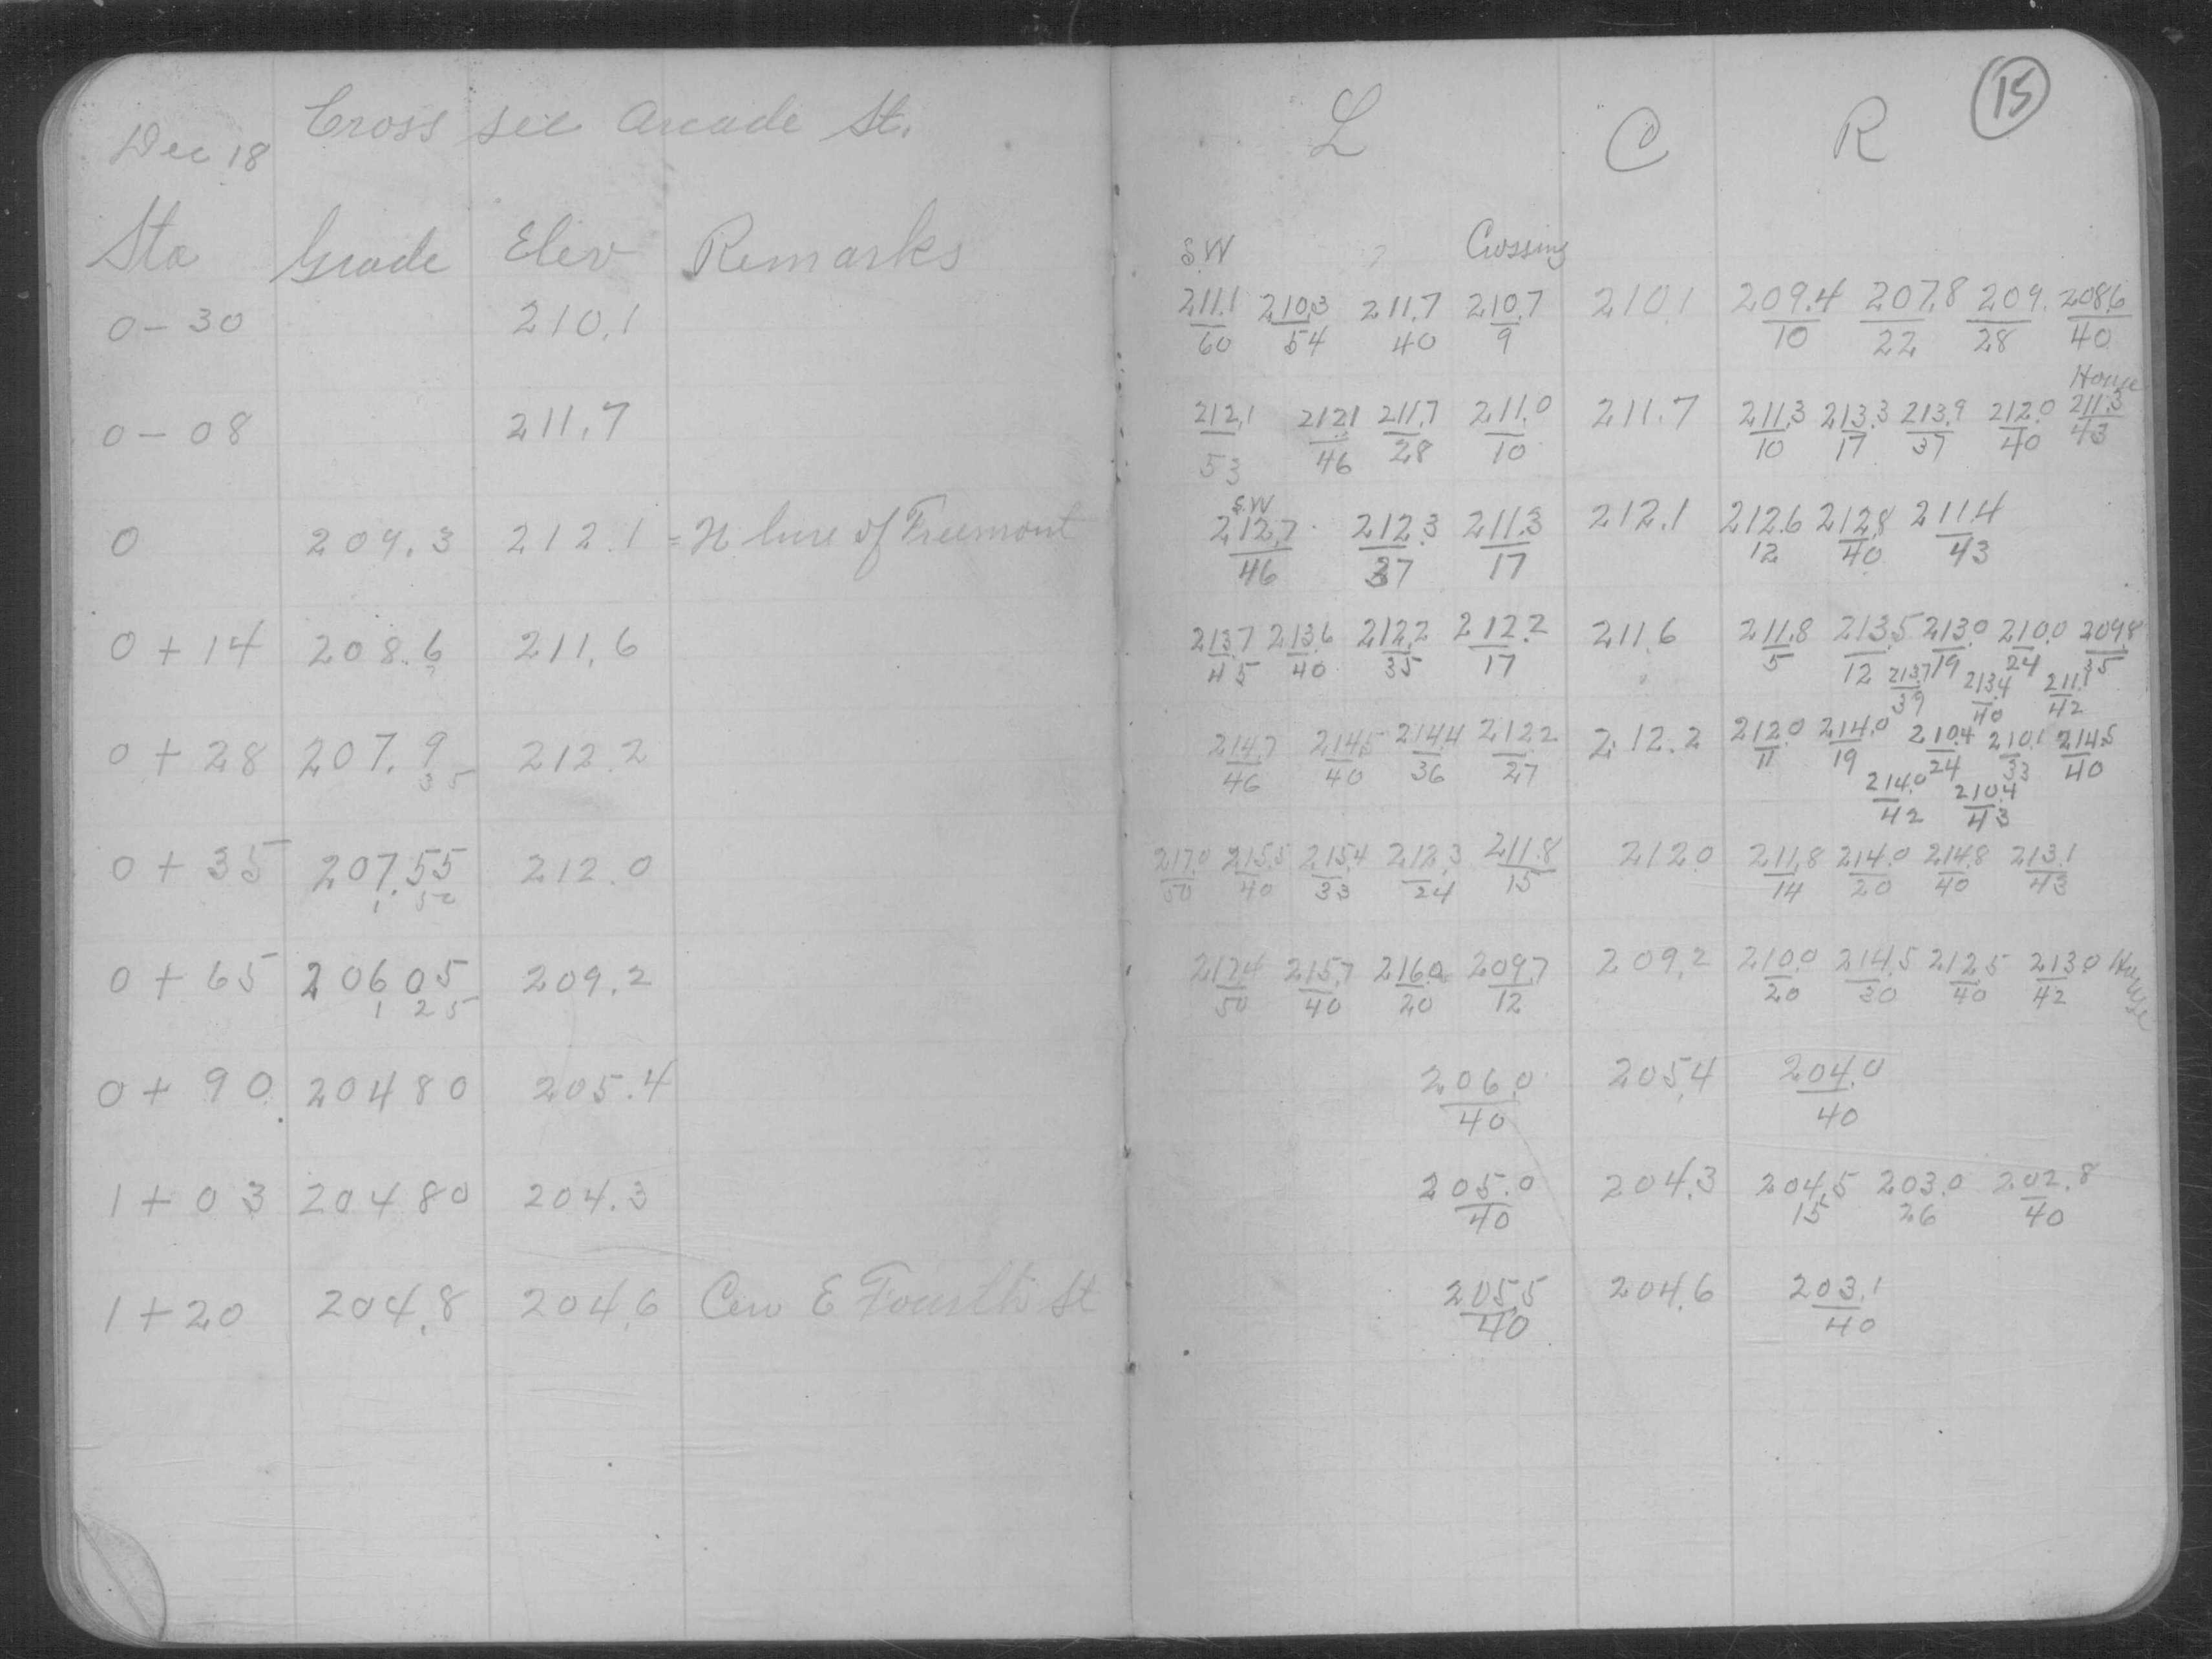 Dec 18 Cross sec Arcade St.
Sta Grade Elev Remarks
0 - 30 210.1
0 - 08 211.7
0 209.3 212.1 = N line of Freemont
0 + 14 208.6 211.6
0 + 28 207.9 212.2
35
0 + 35 207.55 212.0
1 50
0 + 65 206 05 209.2
1 25
0 + 90 204 80 205.4
1 + 03 204 80 204.3
1 + 20 204.8 204.6 Cen E Fourth St
15
L C R
S.W Crossing
211.1 210.3 211.7 210.7 210.1 209.4 207.8 209. 208.6
60 54 40 9 10 22 28 40
House
212.1 212.1 211.7 211.0 211.7 211.3 213.3 213.9 212.0 211.3
53 46 28 10 10 17 37 40 43
S.W
212.7 212.3 211.3 212.1 212.6 212.8 211.4
46 37 17 12 40 43
213.7 213.6 212.2 212.2 211.6 211.8 213.5 213.0 210.0 209.8
45 40 35 17 5 12 19 24 35
213.7 213.4 211.1
39 40 42
214.7 214.5 214.4 212.2 212.2 212.0 214.0 210.4 210.1 214.5
46 40 36 27 11 19 24 33 40
214.0 210.4
42 43
217.0 215.5 215.4 212.3 211.8 212.0 211.8 214.0 214.8 213.1
50 40 33 24 15 14 20 40 43
217.4 215.7 216.0 209.7 209.2 210.0 214.5 212.5 213.0 House
50 40 20 12 20 30 40 42
206.0 205.4 204.0
40 40
205.0 204.3 204.5 203.0 202.8
40 15 26 40
205.5 204.6 203.1
40 40